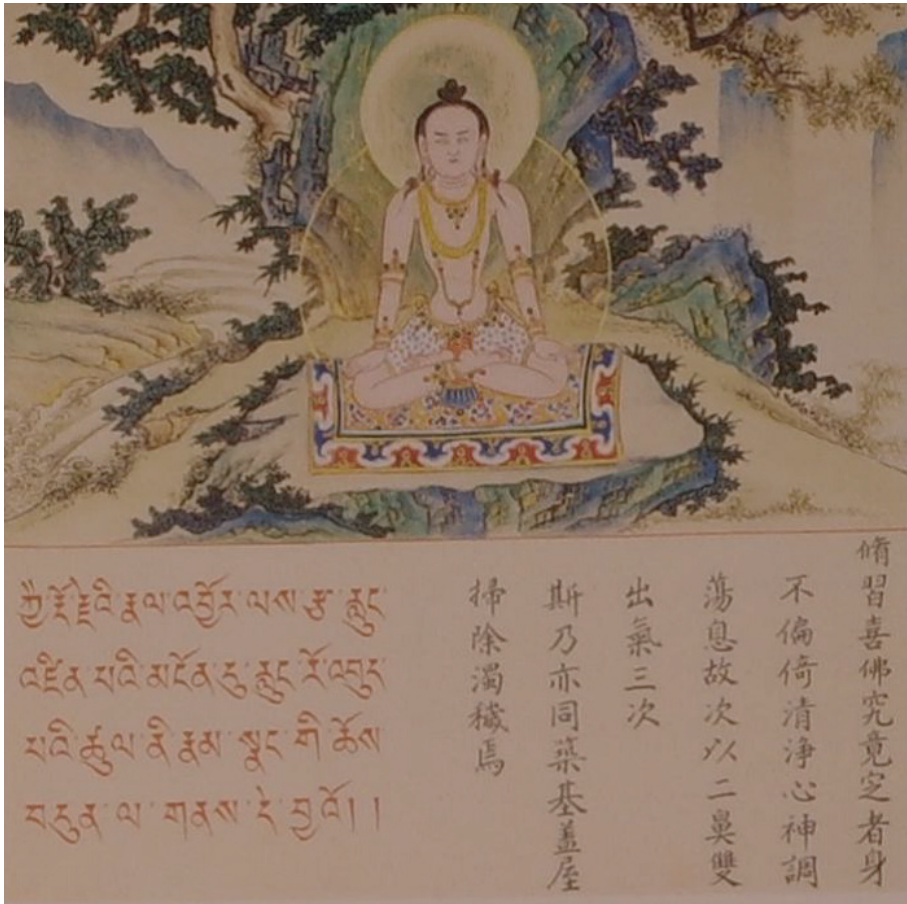 ཀྱཻ་རྡོ་རྗེའི་རྣལ་འབྱོར་ལས་རྩ་རླུང་
འཛིན་པའི་མངོན་དུ་རླུང་རོ་འབུད་
པའི་ཚུལ་ནི་རྣམ་སྣང་གི་ཆོས་
བདུན་ལ་གནས་དེ་བྱའོ། །
脩習喜佛究竟定者身
不偏倚清淨心神調
蕩息故次以二鼻雙
出氣三次
斯乃亦同築基蓋屋
掃除濁穢焉